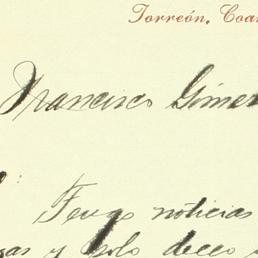 Torreón, Coa
Francisco Gimen
Tengo noticias
gas y solo deceo